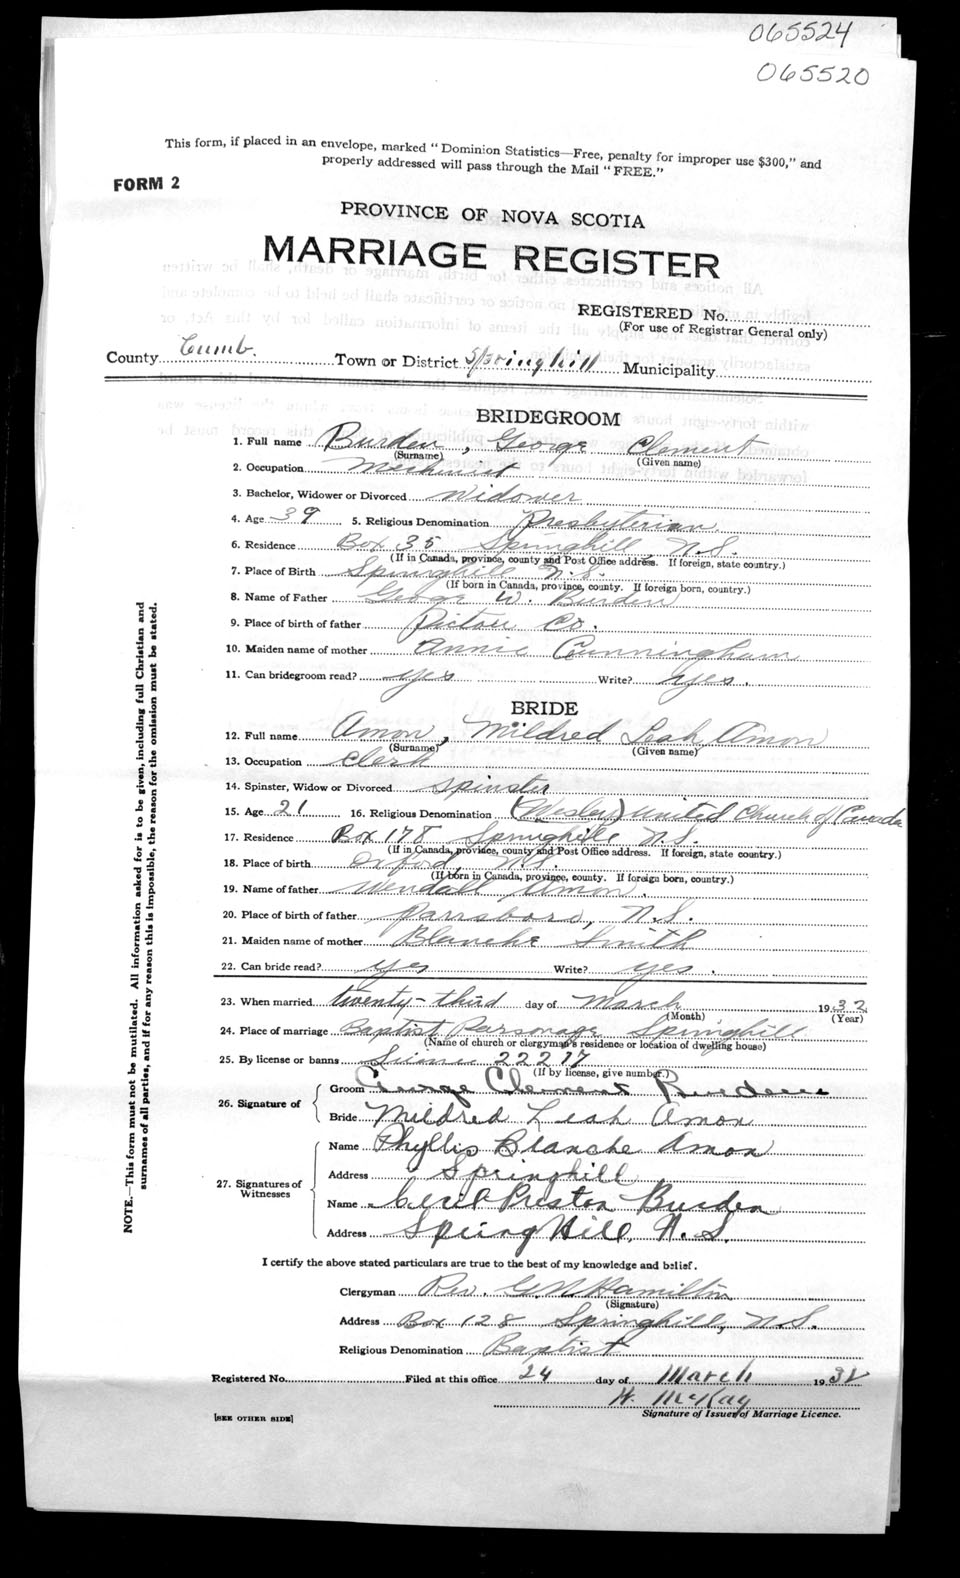 065524
065520
This form, if placed in an envelope, marked "Dominion Statistics—Free, penalty for improper use $300," and
properly addressed will pass through the Mail "FREE."
FORM 2
PROVINCE OF NOVA SCOTIA
MARRIAGE REGISTER
REGISTERED No.
(For use of Registrar General only)
County Cumb. Town or District Springhill Municipality
BRIDEGROOM
1. Full name Burden, George Clement
(Surname) (Given name)
2. Occupation
3. Bachelor, Widower or Divorced Widower
4. Age 39 5. Religious Denomination Presbyterian
6. Residence Box 35 Springhill N.S.
(If in Canada, province, county and Post Office address. If foreign, state country.)
7. Place of Birth Springhill N.S.
(If born in Canada, province, county. If foreign born, country.)
8. Name of Father George W. Burden
9. Place of birth of father Pictou Co.
10. Maiden name of mother Annie Cunningham
11. Can bridegroom read? yes Write? yes.
BRIDE
12. Full name Amon, Mildred Leah Amon
(Surname) (Given name)
13. Occupation Clerk
14. Spinster, Widow or Divorced Spinster
15. Age 21 16. Religious Denomination (Wesley) United Church of Canada
17. Residence Box 178 Springhill N.S.
(If in Canada, province, county and Post Office address. If foreign, state country.)
18. Place of birth Oxford, N.S.
(If born in Canada, province, county. If foreign born, country.)
19. Name of father Wendall Amon.
20. Place of birth of father Parrsboro, N.S.
21. Maiden name of mother Blanche Smith
22. Can bride read? yes Write? yes.
23. When married twenty-third day of March 1932
(Month) (Year)
24. Place of marriage Baptist Parsonage Springhill
(Name of church or clergyman's residence or location of dwelling house)
25. By license or banns License 22217
(If by license, give number.)
26. Signature of
Groom George Clement Burden
Bride Mildred Leah Amon
27. Signatures of Witnesses
Name Phyllis Blanche Amon
Address Springhill
Name Cecil Preston Burden
Address Spring Hill, N.S.
I certify the above stated particulars are true to the best of my knowledge and belief.
Clergyman Rev. G. N. Hamilton
(Signature)
Address Box 128 Springhill, N.S.
Religious Denomination Baptist
Registered No. Filed at this office 24 day of March 1932
W. McKay
[SEE OTHER SIDE] Signature of Issuer of Marriage Licence.
NOTE.—This form must not be mutilated. All information asked for is to be given, including full Christian and
surnames of all parties, and if for any reason this is impossible, the reason for the omission must be stated.